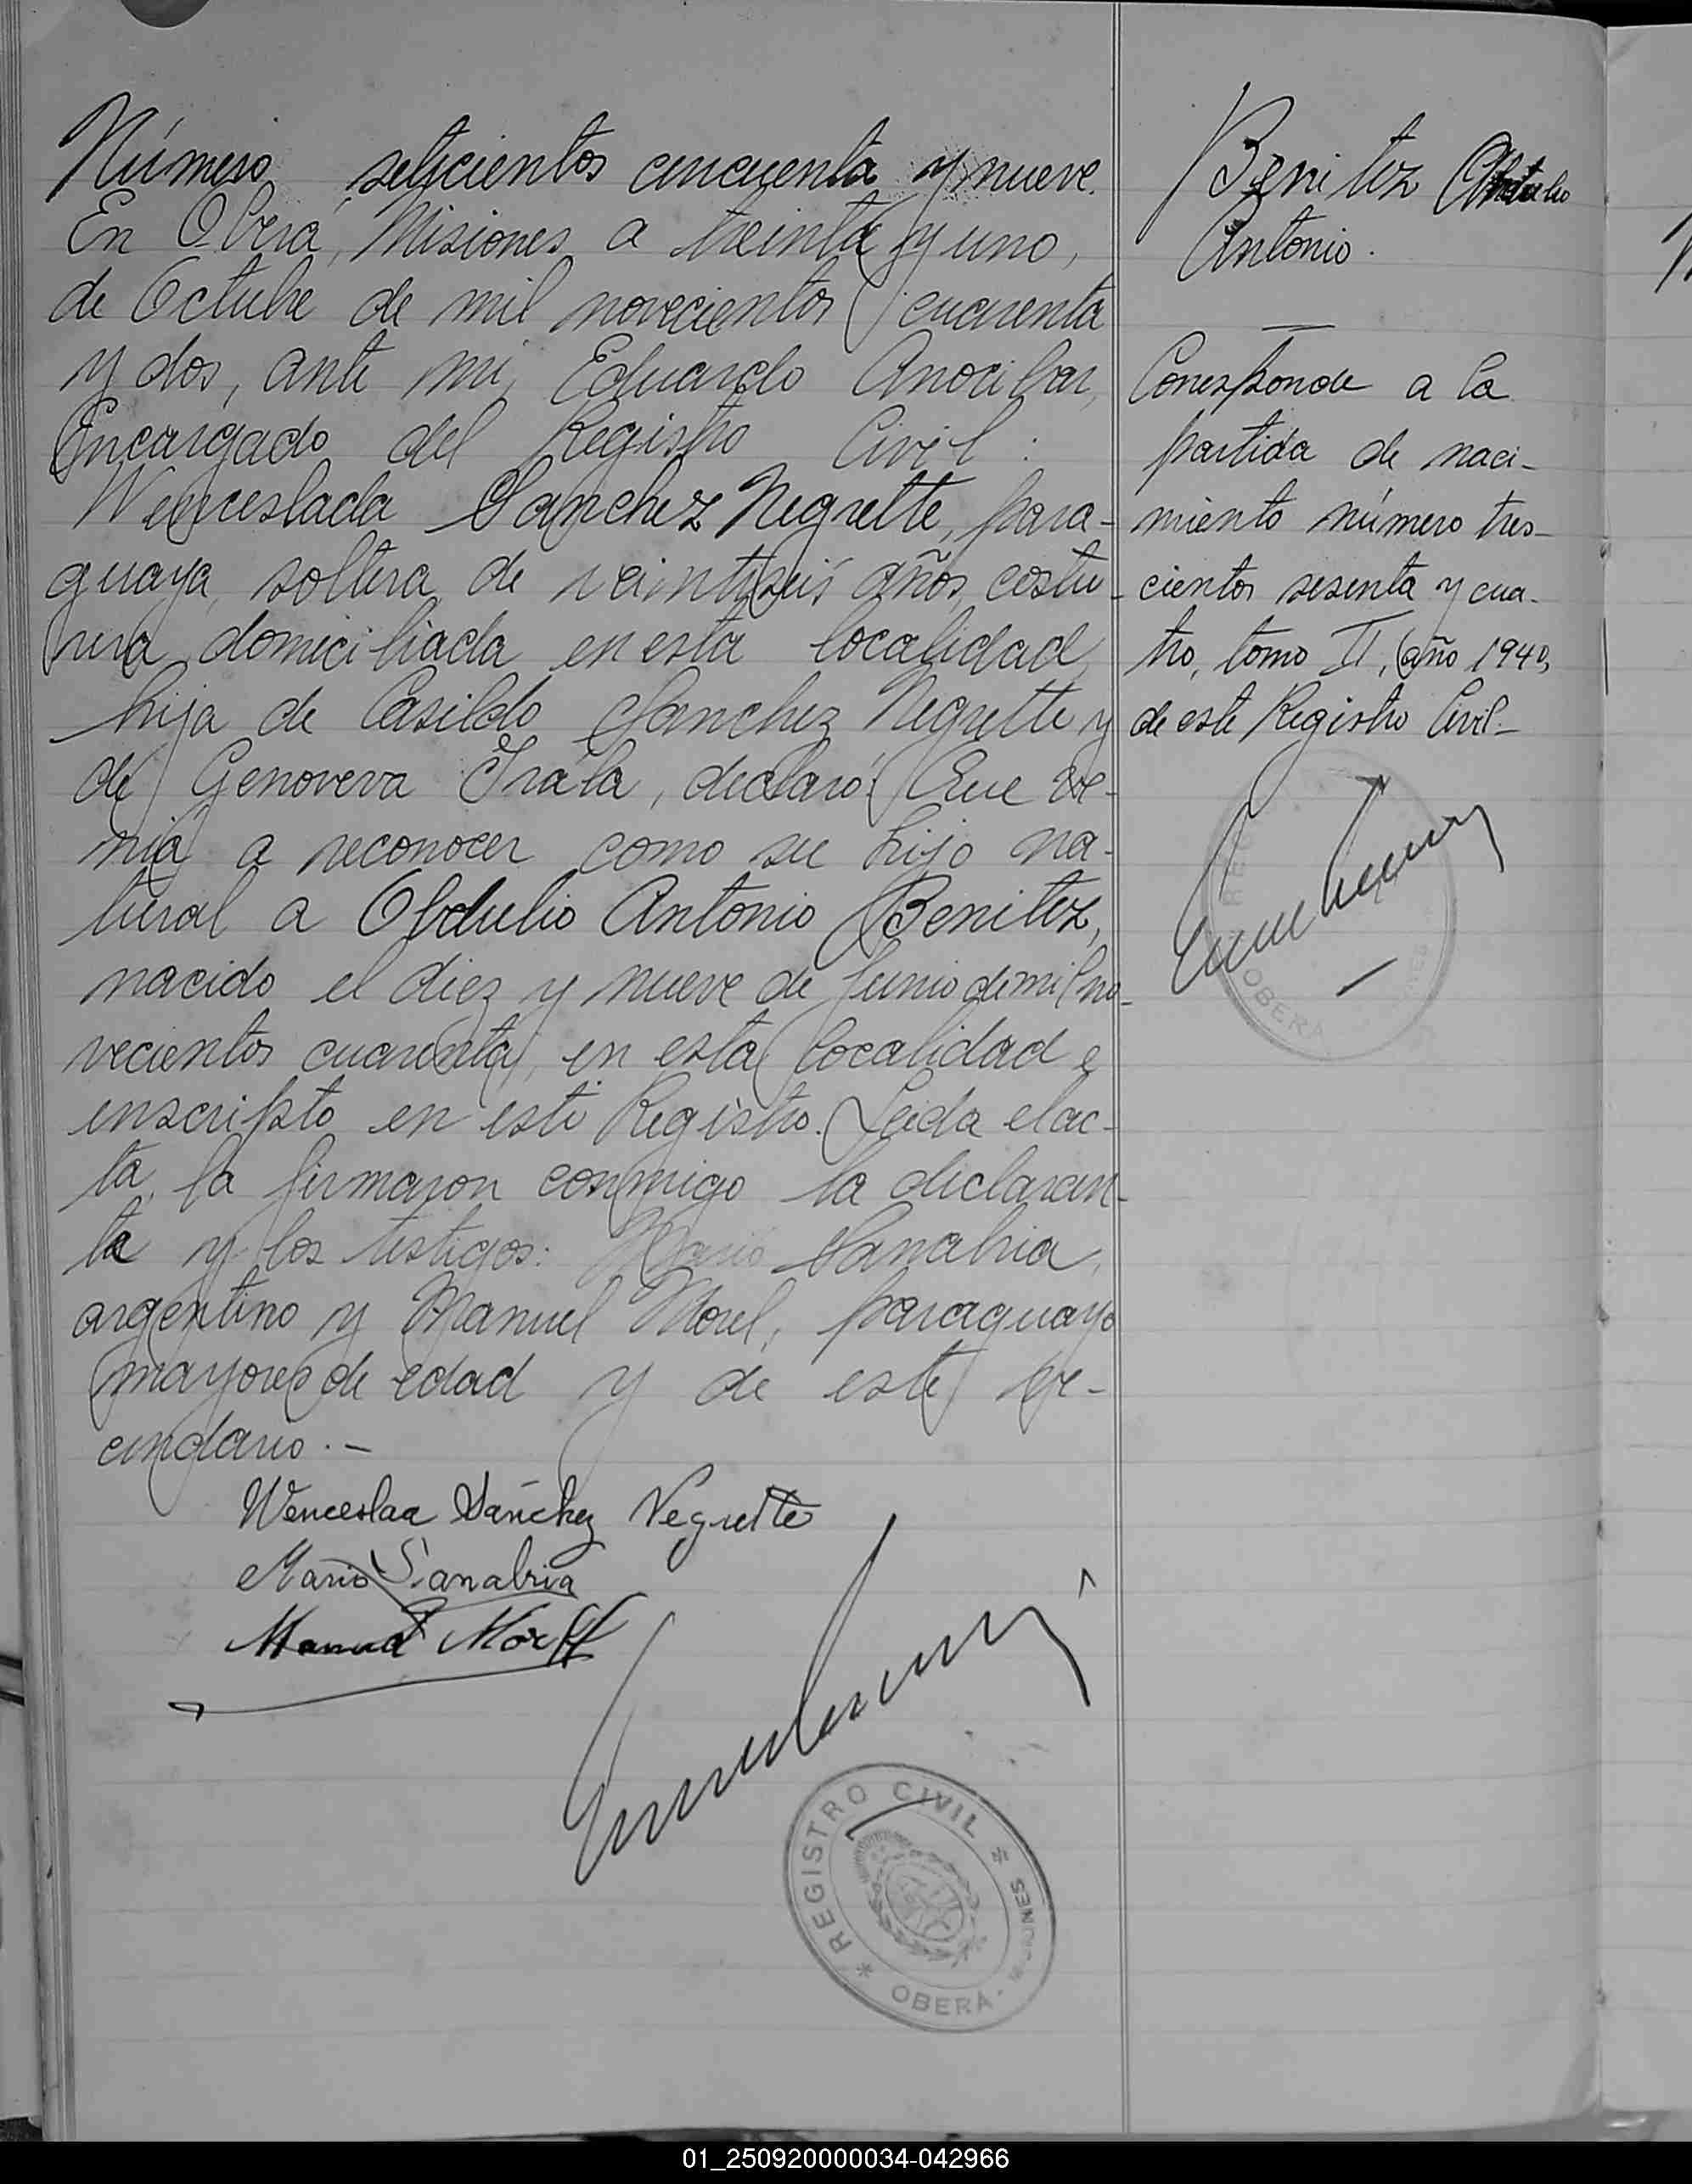 Número setecientos cincuenta y nueve.
En Oberá, Misiones, a treinta y uno,
de Octubre de mil novecientos cuarenta
y dos, ante mi, Eduardo Anocibar,
Encargado del Registro Civil:
Wenceslada Sanchez Negrette, para-
guaya, soltera, de veintiseis años, costu-
rera, domiciliada en esta localidad,
hija de Casildo Sanchez Negrette y
de Genoveva Irala, declaró: Que ve-
nia a reconocer como su hijo na-
tural a Obdulio Antonio Benitez,
nacido el diez y nueve de Junio de mil no-
vecientos cuarenta, en esta localidad e
inscripto en este Registro. Leida el ac-
ta, la firmaron conmigo la declaran-
te y los testigos: Mario Sanabria,
argentino y Manuel Morel, paraguayo
mayores de edad y de este ve-
cindario.-
Wenceslaa Sánchez Negrette
Mario Sanabria
Manuel
REGISTRO CIVIL
OBERÁ
MISIONES
Benitez Obdulio
Antonio.
Corresponde a la
partida de naci-
miento número tres-
cientos sesenta y cua-
tro, tomo II, año 1940,
de este Registro Civil-
OBERÁ
01_250920000034-042966